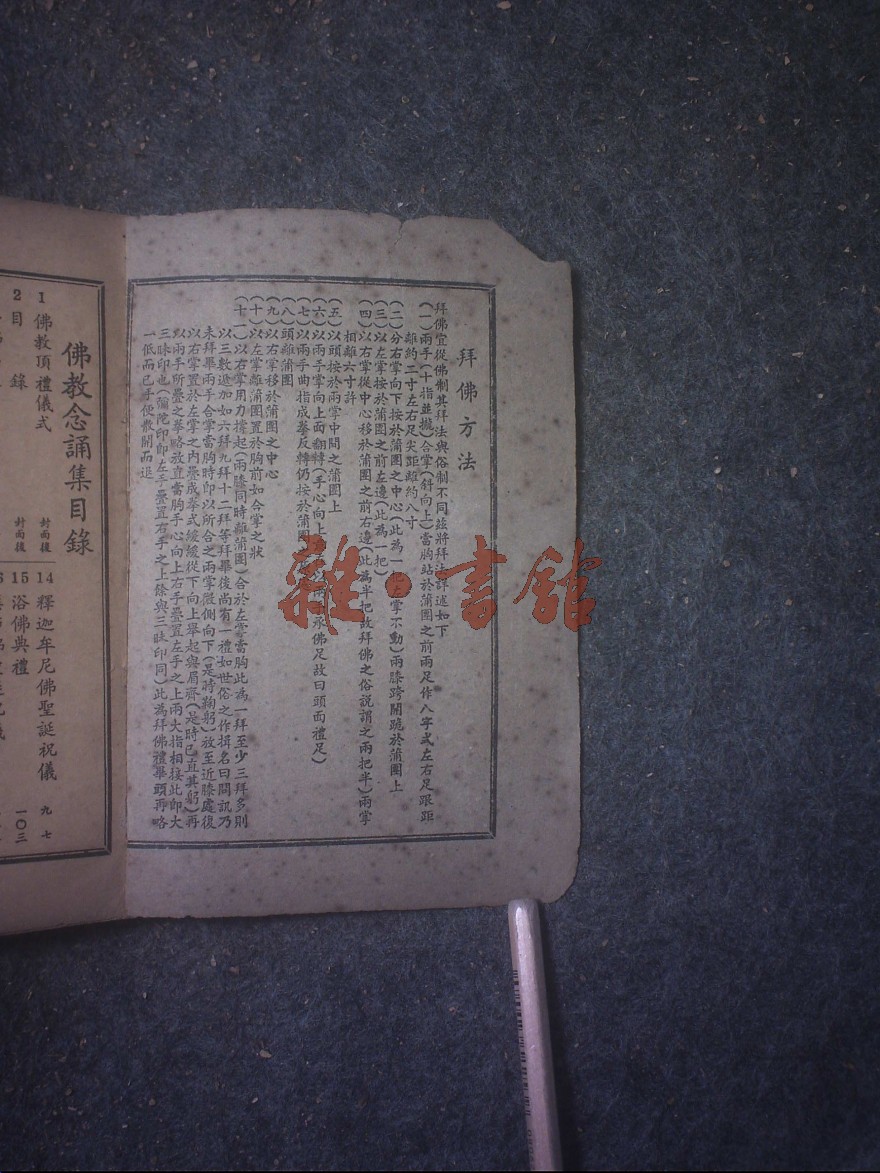 拜佛方法
拜佛宜從佛制其拜法與俗制不同茲將拜法詳述如下
(一)兩手(十指並攏)合掌(斜向上)當胸站於蒲團之前兩足作八字式左右足跟距
離約二寸左右足尖距離約八寸
(二)分右掌向下按於蒲團之中心(此為一把左掌不動)兩膝跨開跪於蒲團上
(三)以左掌按於蒲團之前左邊(此為一把)
(四)以右掌從中心移於蒲團之前右邊(此為半把故拜佛之俗說謂之兩把半)兩掌
相離六寸許
(五)以頭按於兩掌中間之蒲團上
(六)以兩手掌向上面翻轉(手心向上 以兩手承佛足故曰頭面禮足)
(七)以兩手曲指成拳反轉仍按於蒲團
(八)頭離蒲團
(九)以右掌移於蒲團之中心
(十)以左掌離蒲團置於胸前如合掌之狀
(十一)以右掌用力撐起(兩膝同時離蒲團)合於左掌當胸此為一拜至少三拜多則
以三數遞加如六拜九拜十二拜等拜畢後尚有一禮如世俗之作揖名曰問訊乃
未拜畢兩手合掌當胸時即以所合之兩掌微側向下(是時鞠躬)放至近膝處後
以右掌置於左掌之內疊成拳式緩緩從下向上舉起與眉齊(是時已直其躬)再
以兩手所疊之拳略放直當胸手心向上右手疊置左手之上兩大指相接此即大
三昧印也(彌陀印即左手疊置右手之上餘與三昧印同)此為拜佛禮畢頭再略
一低而已手便散開而退
佛教念誦集目錄
1 佛教頂禮儀式 封面後
2 目錄 封面後
14 釋迦牟尼佛聖誕祝儀 九七
15 浴佛典禮 一〇三
雜·書館